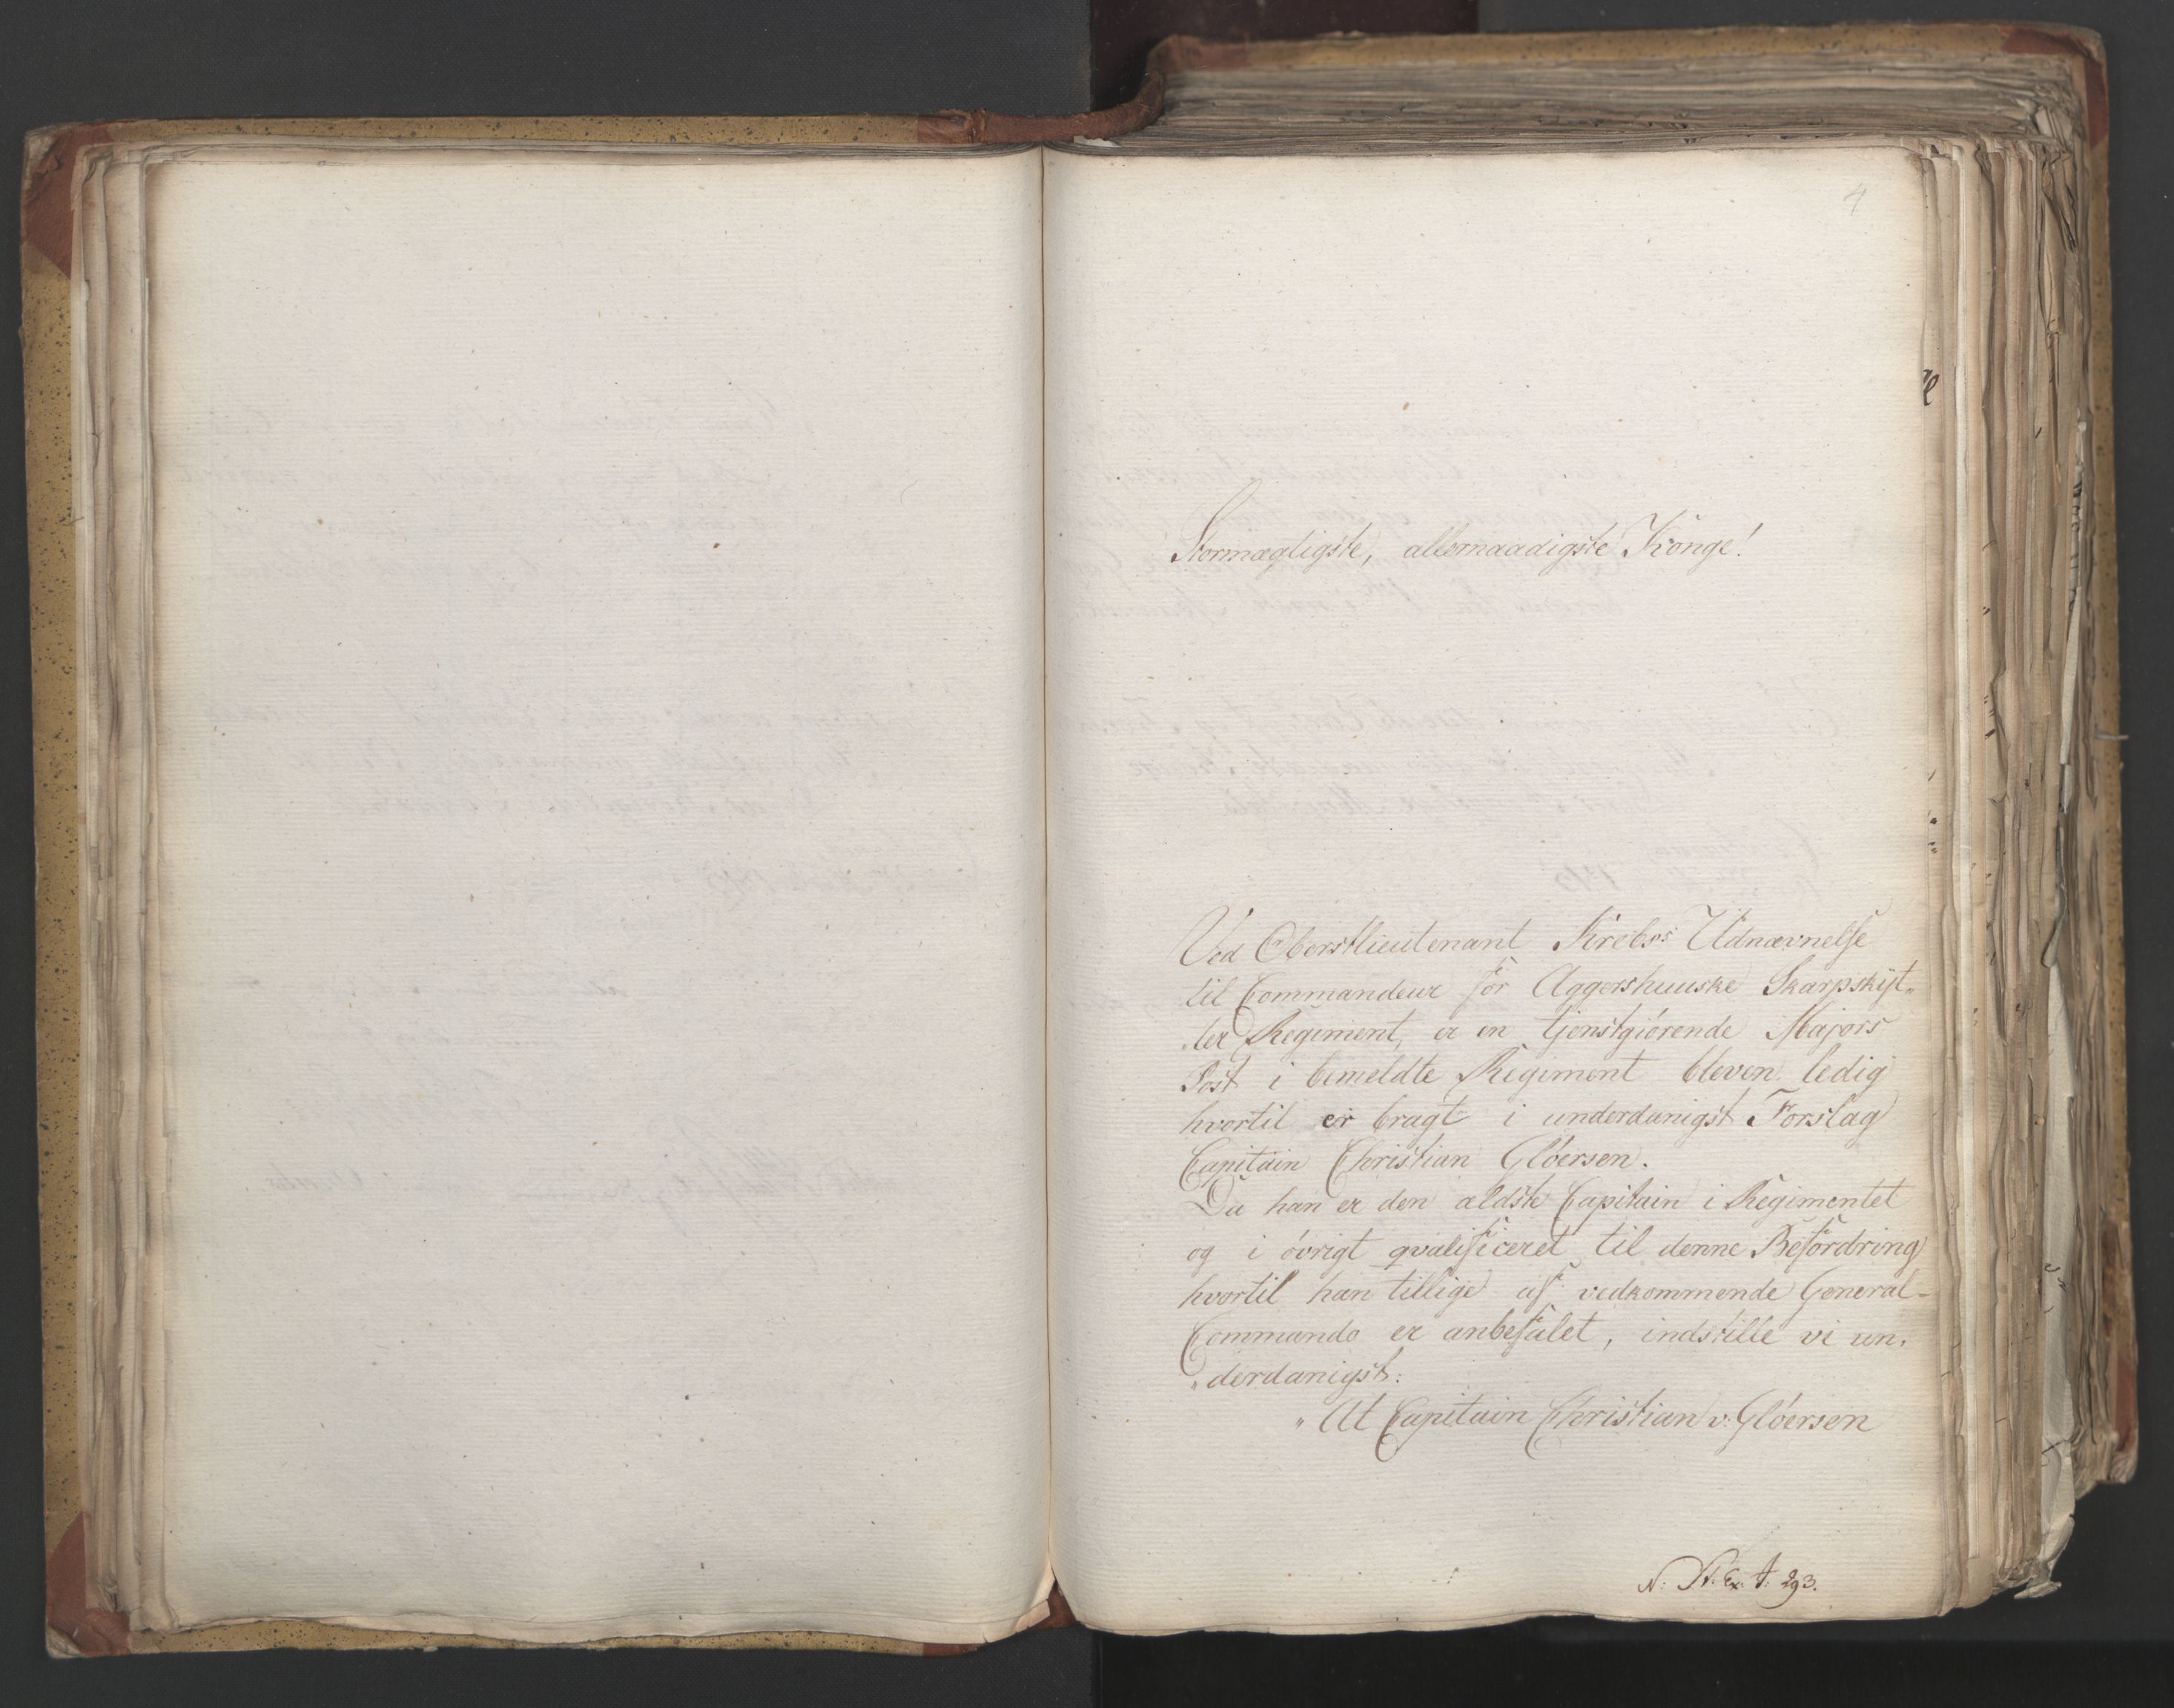 4
Stormægtigste, allernaadigste Konge!
Ved Oberstlieutenant Krebs's Udnævnelse
til Commandeur for Aggershuuske Skarpskyt„
„ter Regiment, er en tjenstgiörende Majors
Post i bemeldte Regiment bleven ledig
hvortil er bragt i underdanigst Forslag
Capitain Christian Glöersen.
Da han er den ældste Capitain i Regimentet
og i övrigt qvalificeret til denne Befordring
hvortil han tillige af vedkommende General-
Commando er anbefalet, indstille vi un„
„derdanigst:
„At Capitain Christian v: Glöersen
N: St: Ex: A: 293.